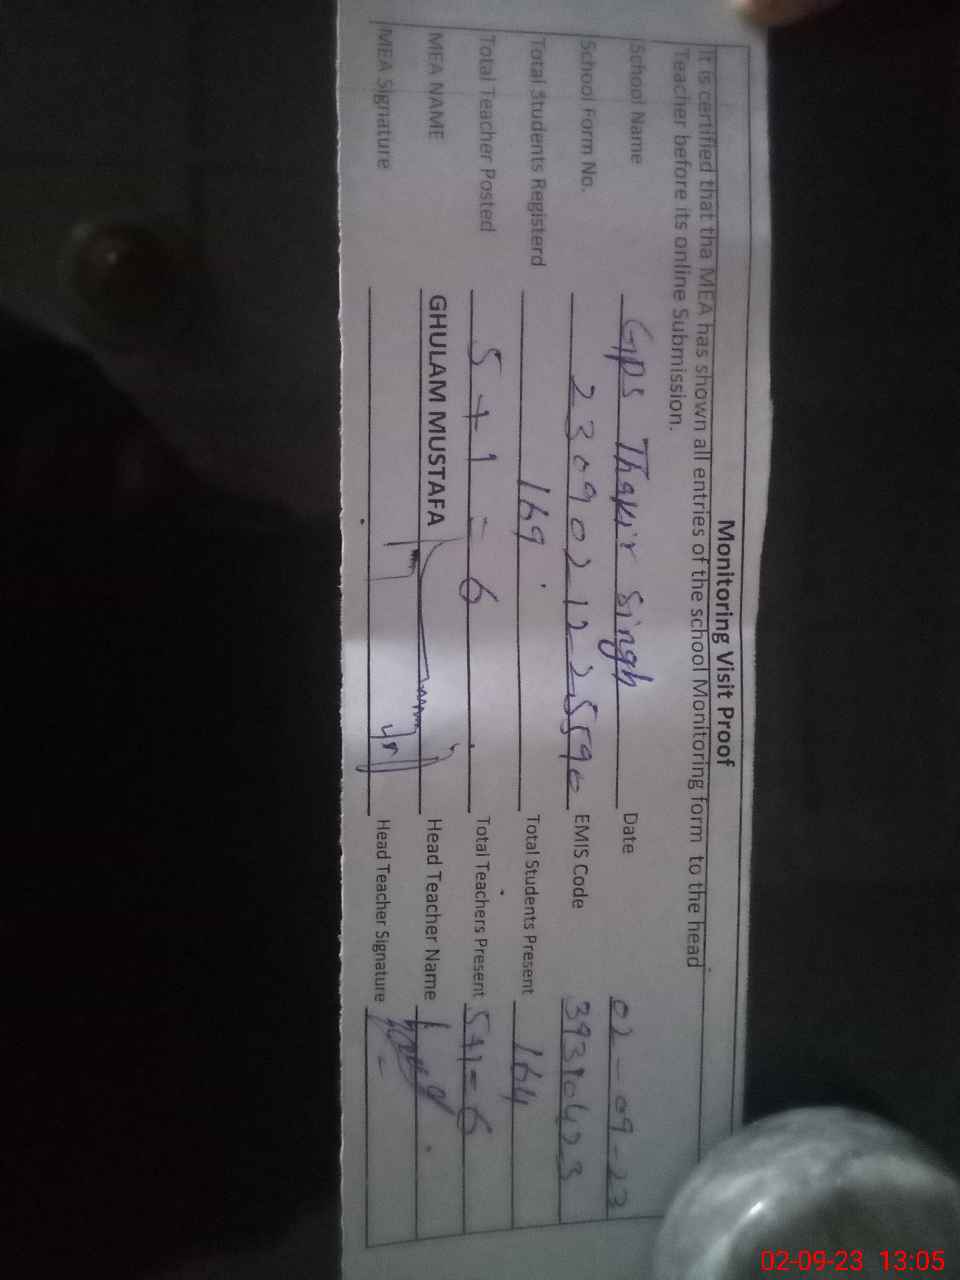 Monitoring Visit Proof
It is certified that tha MEA has shown all entries of the school Monitoring form to the head
Teacher before its online Submission.
School Name GPS Thakir Singh Date 02-09-23
School Form No. 2309021225590 EMIS Code 39310423
Total Students Registerd 169 Total Students Present 164
Total Teacher Posted 5+1=6 Total Teachers Present 5+1=6
MEA NAME GHULAM MUSTAFA Head Teacher Name
MEA Signature Head Teacher Signature
02-09-23 13:05